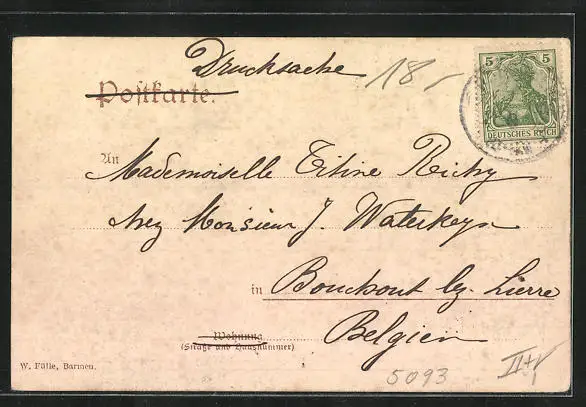 Drucksache 18.-
Postkarte.
5 5
DEUTSCHES REICH
An
Mademoiselle Titine Richy
chez Monsieur J. Waterkeyn
in Bouchout by Lierre
Belgien
Wohnung
(Straße und Hausnummer)
W. Fülle, Barmen.
5093